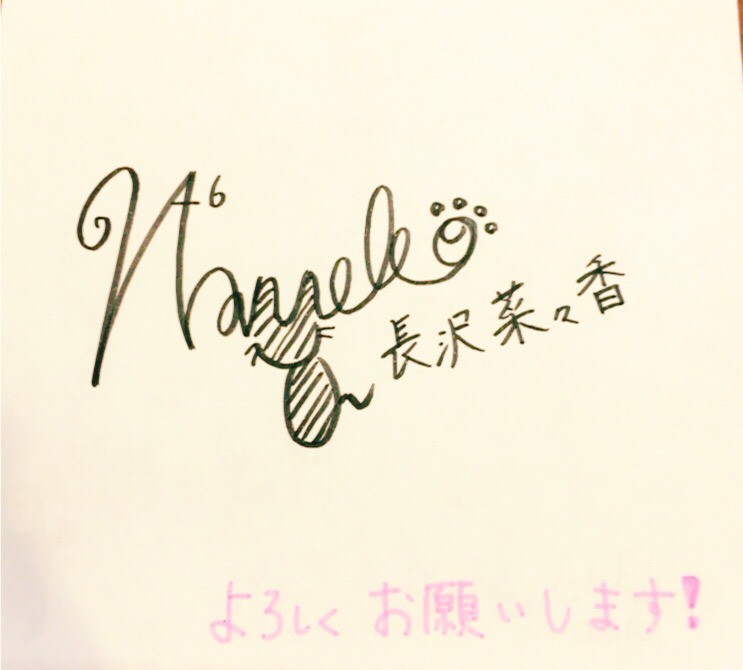 46
Naneko
長沢菜々香
よろしくお願いします!